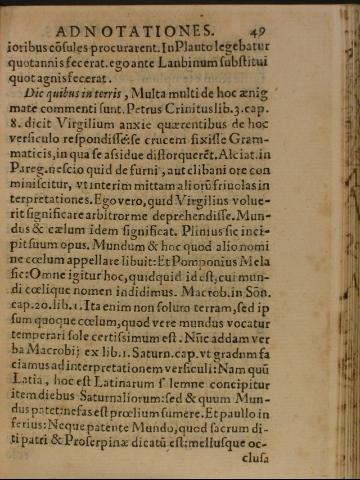 ADNOTATIONES. 49
ioribus cõsules procurarent. In Plauto legebatur
quotannis fecerat. ego ante Lanbinum substitui
quot agnis fecerat.
Dic quibus in terris, Multa multi de hoc ænig
mate commenti sunt. Petrus Crinitus lib. 3. cap.
8. dicit Virgilium anxie quærentibus de hoc
versiculo respondisse: se crucem fixisse Gram-
maticis, in qua se assidue distorquerẽt. Alciat. in
Pareg. nescio quid de furni, aut clibani ore con
miniscitur, vt interim mittam aliorũ friuolas in
terpretationes. Ego vero, quid Virgilius volue-
rit significare arbitror me deprehendisse. Mun-
dus & cælum idem significat. Plinius sic inci-
pit suum opus. Mundum & hoc quod alio nomi
ne cœlum appellare libuit: Et Pomponius Mela
sic: Omne igitur hoc, quidquid id est, cui mun-
di cœlique nomen indidimus. Macrob. in Sõn.
cap. 20. lib. 1. Ita enim non solum terram, sed ip
sum quoque cœlum, quod vere mundus vocatur
temperari sole certissimum est. Nũc addam ver
ba Macrobij ex lib. 1. Saturn. cap. vt gradum fa
ciamus ad interpretationem versiculi: Nam quũ
Latia, hoc est Latinarum sʳ lemne concipitur
item diebus Saturnaliorum: sed & quum Mun-
dus patet: nefas est prœlium sumere. Et paullo in
ferius: Neque patente Mundo, quod sacrum di-
ti patri & Proserpinæ dicatũ est: meliusque oc-
clusa